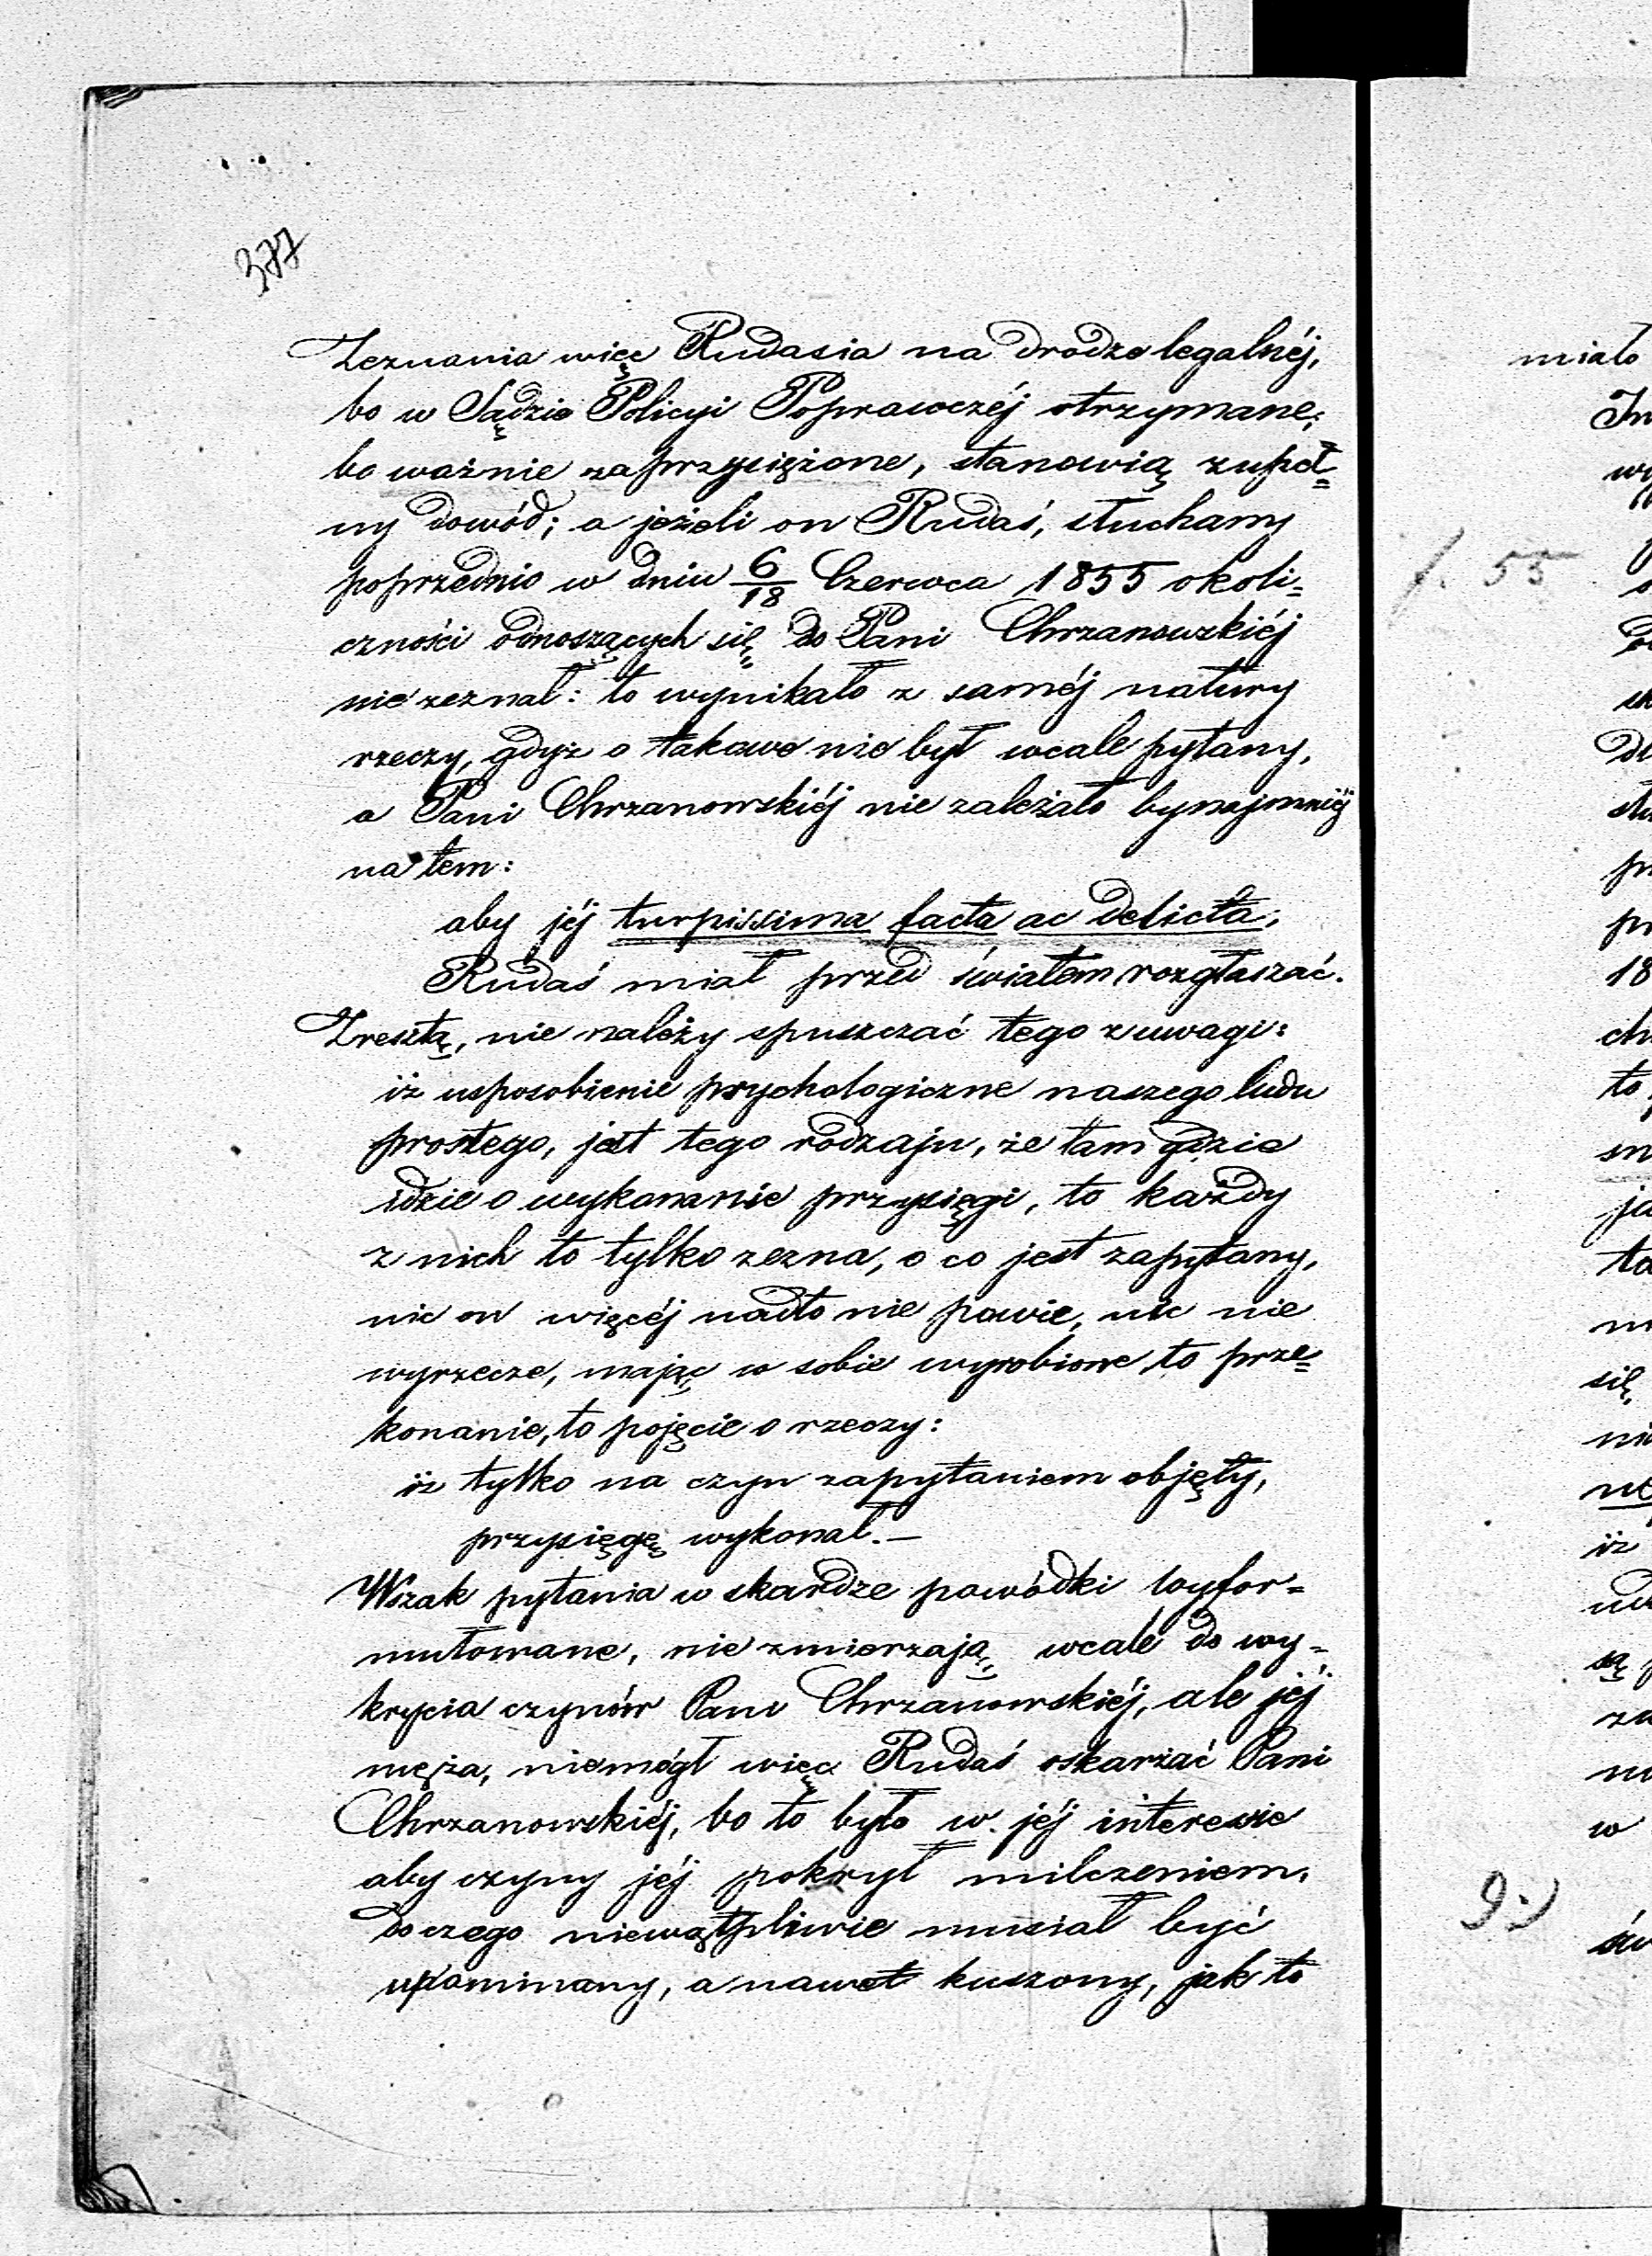 377
Zeznania więc Rudasia na drodze legalnéj,
bo w Sądzie Policyi Poprawczéj otrzymane;
bo ważnie zaprzysiężone, stanowią zupeł=
ny dowód; a jeżeli on Rudaś, słuchany
poprzednio w dniu 6/18 Czerwca 1855 okoli=
czności odnoszących się do Pani Chrzanowskiéj
nie zeznał: to wynikało z saméj natury
rzeczy, gdyż o takowe nie był wcale pytany,
a Pani Chrzanowskiéj nie zależało bynajmniéj
na tem:
aby jéj turpissima facta ac delicta,
Rudaś miał przed światem rozgłaszać.
Zresztą, nie należy spuszczać tego z uwagi:
iż usposobienie psychologiczne naszego ludu
prostego, jest tego rodzaju, że tam gdzie
idzie o wykonanie przysięgi, to każdy
z nich to tylko zezna, o co jest zapytany,
nic on więcéj nadto nie powie, nic nie
wyrzecze, mając w sobie wyrobione to prze=
konanie, to pojęcie o rzeczy:
iż tylko na czyn zapytaniem objęty,
przysięgę wykonał.—
Wszak pytania w skardze powódki wyfor=
mułowane, nie zmierzają, wcale do wy=
krycia czynów Pani Chrzanowskiéj, ale jéj
męża, niemógł więc Rudaś oskarżać Pani
Chrzanowskiéj, bo to było w. jéj interesie
aby czyny jéj pokrył milczeniem,
do czego niewątpliwie musiał być
upominany, a nawet kuszony, jak to
miało
f. 55
18
to
się
iż
są
w
9.)